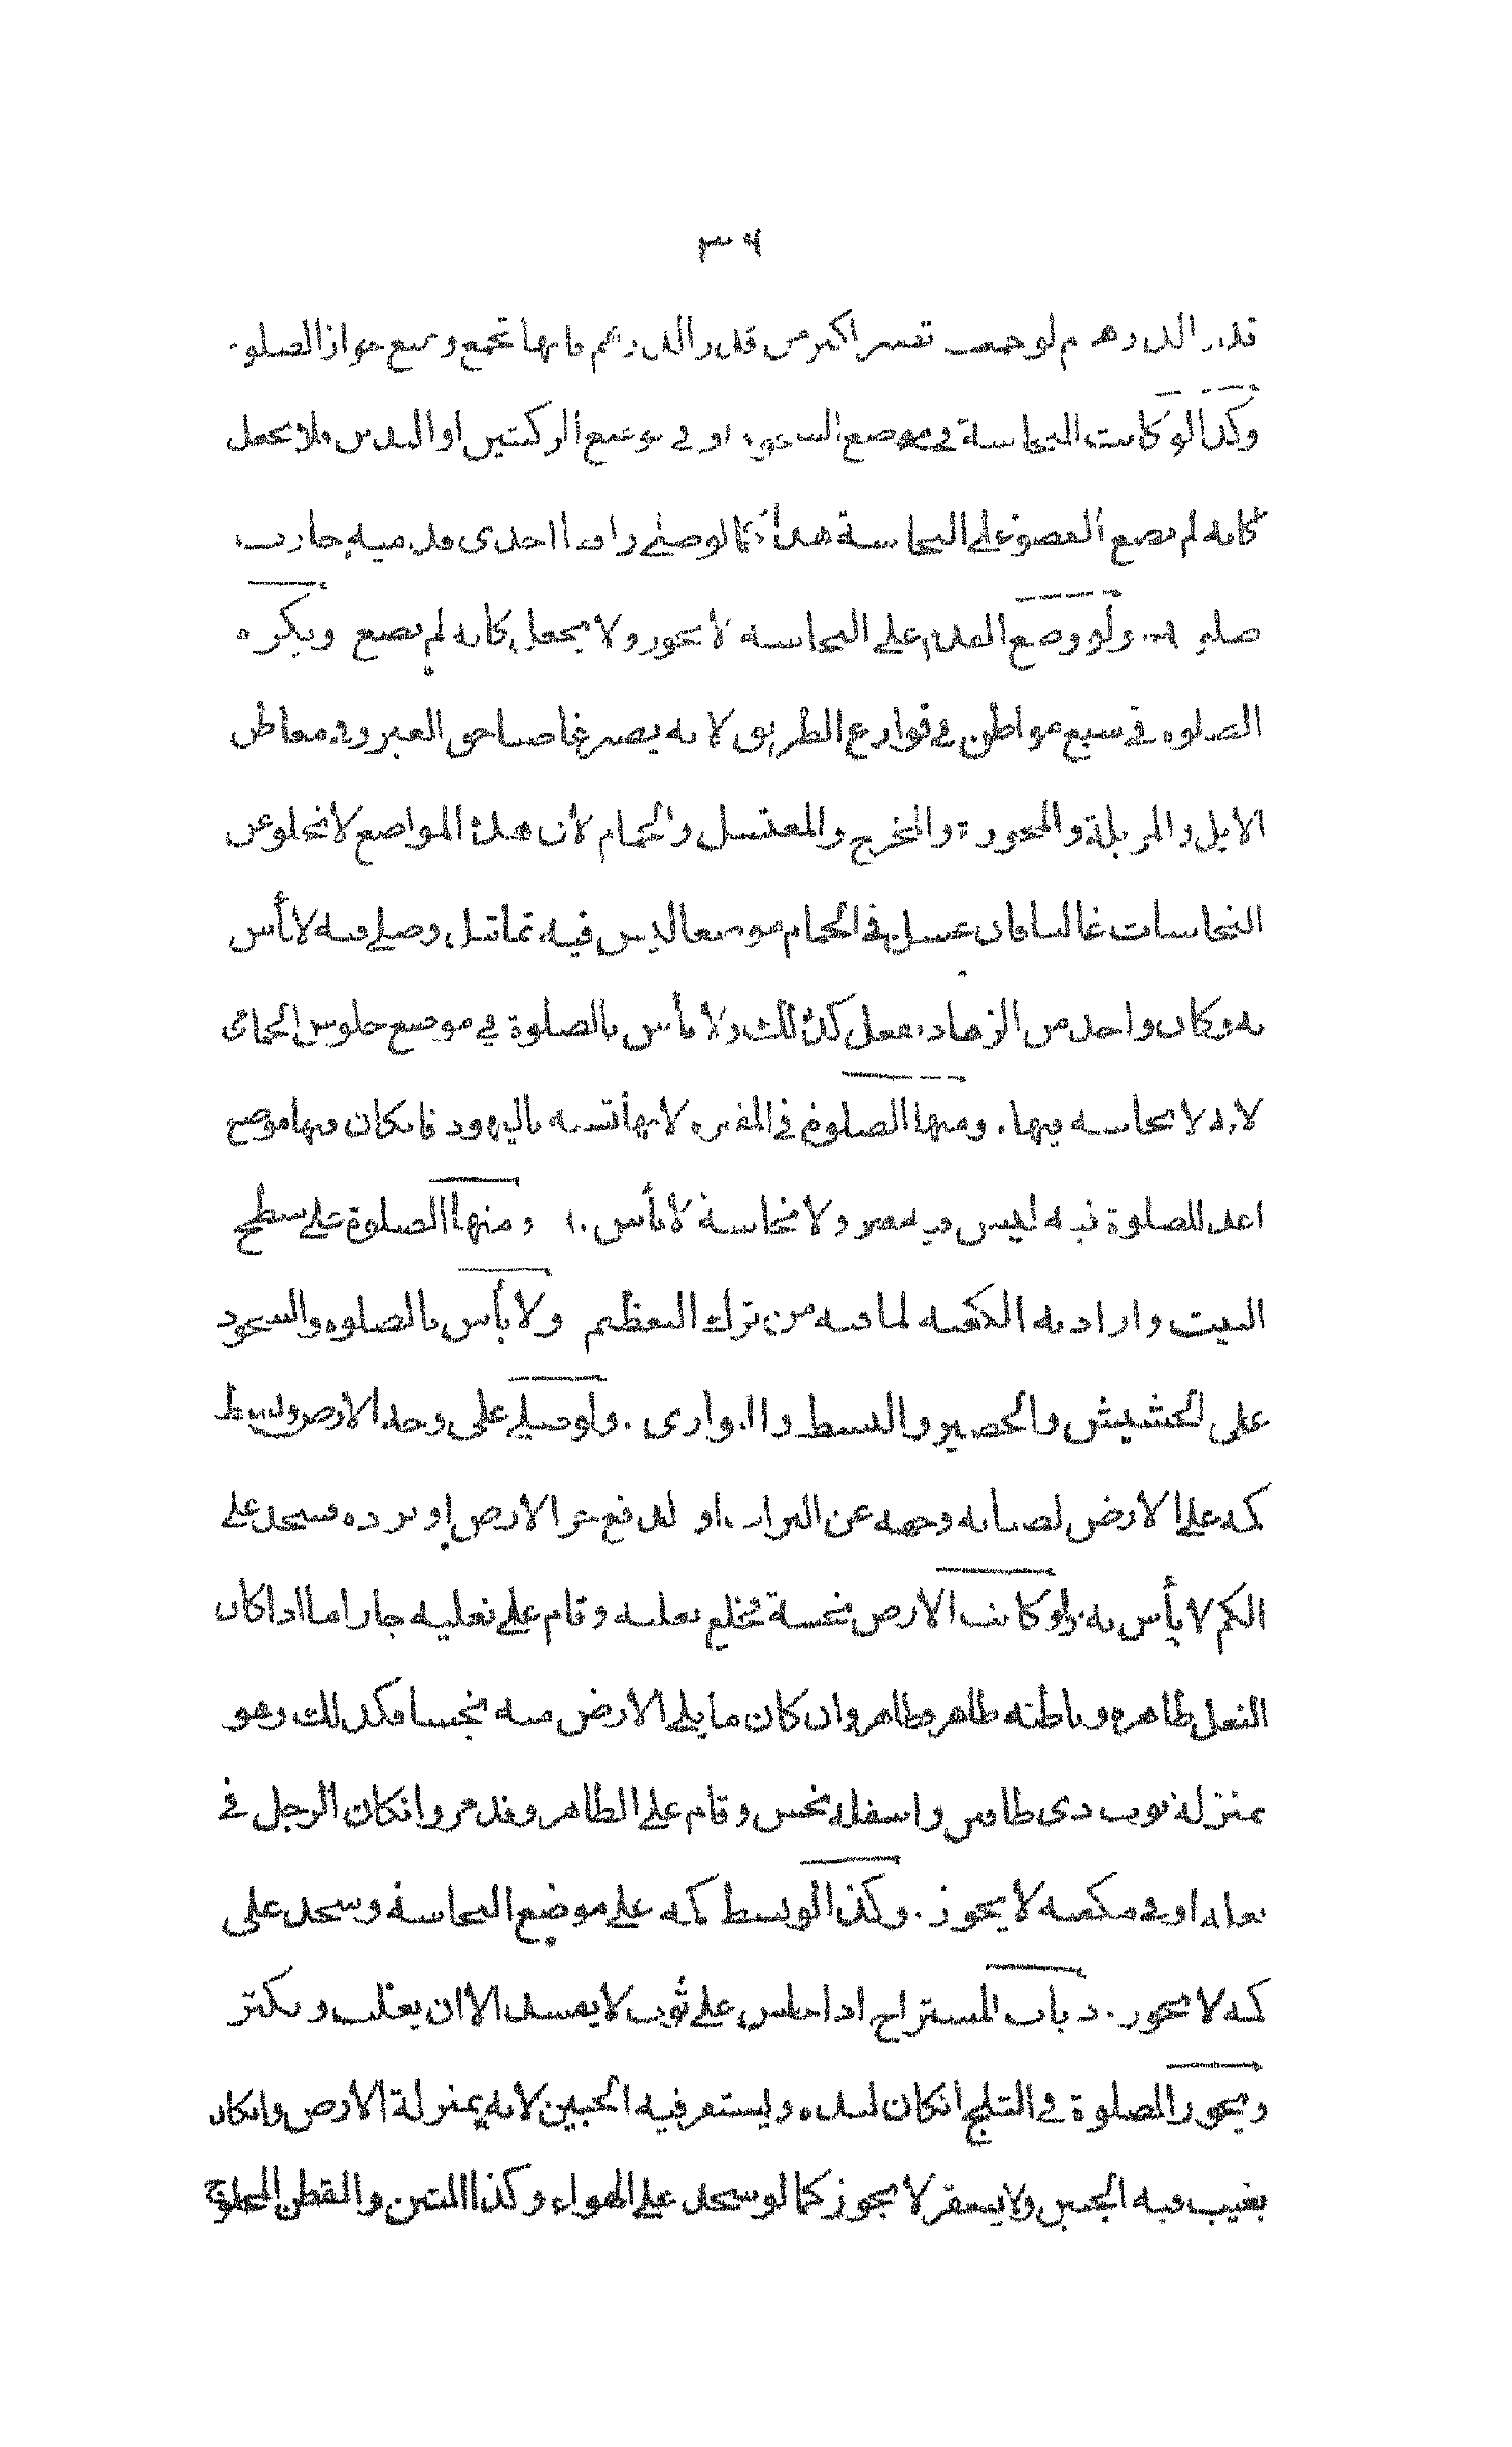 ٣٦
قدر الدرهم لوجمعت تصير اكثر من قدر الدرهم فانها تجمع ويمنع جواز الصلوة
وكذا لو كانت النجاسة في موضع السجود او في موضع الركبتين او اليدين ولا يجعل
كانه لم يضع العضو على النجاسة هذا كما لو صلى رافعا احدى قدميه جازت
صلوته ولو وضع القدم على النجاسة لا يجوز ولا يجعل كانه لم يضع ويكره
الصلوة في سبع مواطن في قوارع الطريق لانه يصير غاصبا حق الغير وفي معاطن
الابل والمزبلة والمجزرة والمخرج والمغتسل والحمام لأن هذه المواضع لا تخلو عن
النجاسات غالبا فان غسل في الحمام موضعا ليس فيه تماثيل وصلى فيه لا بأس
به وكان واحد من الزهاد يفعل كذلك ولا بأس بالصلوة في موضع جلوس الحمامي
لانه لا نجاسة فيها. ومنها الصلوة في المقبرة لانها تشبه باليهود فان كان فيها موضع
اعد للصلوة فيه ليس فيه قبر ولا نجاسة لا بأس به ومنها الصلوة على سطح
البيت واراد به الكعبة لما فيه من ترك التعظيم ولا بأس بالصلوة والسجود
على الحشيش والحصير والبسط والبوارى. ولو صلى على وجه الارض وبسط
كمه على الارض لصيانة وجهه عن التراب او لدفع حر الارض او برده فسجد على
الكم لا بأس به ولو كانت الارض نجسة فخلع نعليه وقام على نعليه جاز اما اذا كان
النعل ظاهره وباطنه طاهر فظاهر وان كان ما يلي الارض منه نجسا فكذلك وهو
بمنزلة ثوب ذى طاقين واسفله نجس وقام على الطاهر وقد مر وان كان الرجل في
نعله او في مكعبه لا يجوز. وكذا لو بسط كمه على موضع النجاسة وسجد على
كمه لا يجوز. ذباب المستراح اذا جلس على ثوب لا يفسد الا ان يغلب ويكثر
ويجوز الصلوة في الثلج ان كان لبده ويستقر فيه الجبين لانه بمنزلة الارض وان كان
يغيب فيه الجبين ولا يستقر لا يجوز كما لو سجد على الهواء وكذا التبن والقطن المحلوج